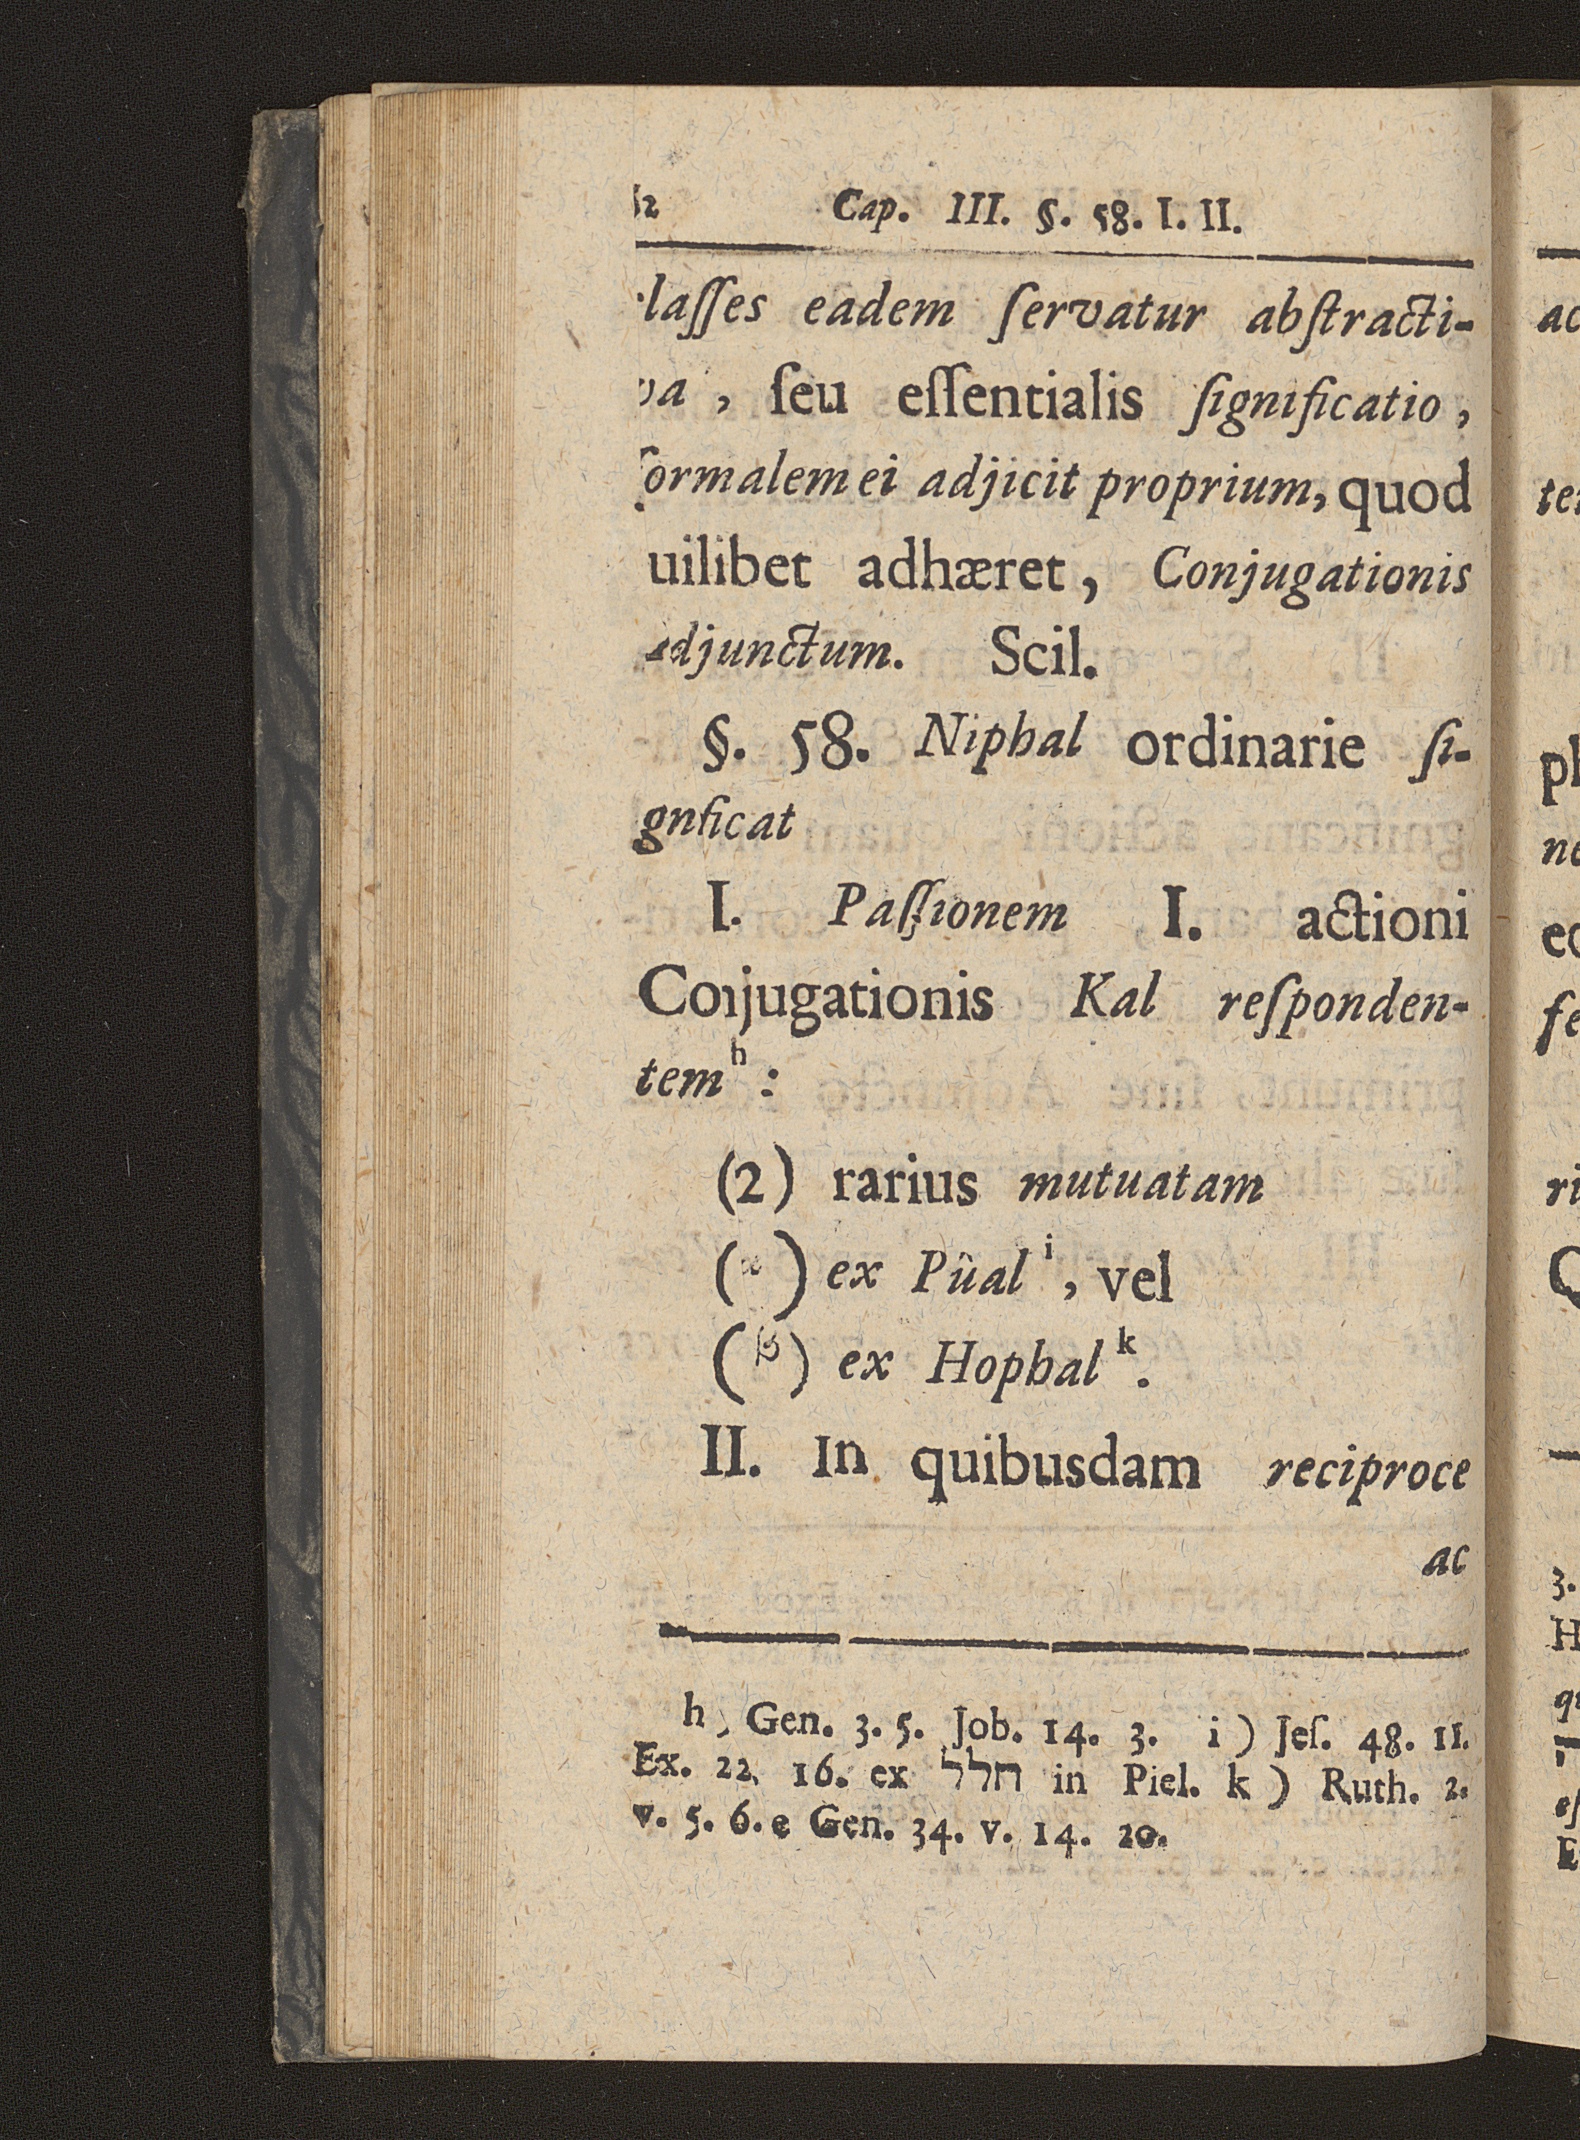 2 Cap. III. §. 58. I. II.
laſſes eadem ſervatur abſtracti-
va, ſeu eſſentialis ſignificatio,
formalem ei adjicit proprium, quod
uilibet adhæret, Conjugationis
adjunctum. Scil.
§. 58. Niphal ordinarie ſi-
gnficat
I. Paſſionem I. actioni
Coıjugationis Kal reſponden-
tem h :
(2) rarius mutuatam
(α) ex Pûal i, vel
(β) ex Hophal k.
II. In quibusdam reciproce
ac
h) Gen. 3. 5. Job. 14. 3. i) Jeſ. 48. 11.
Ex. 22. 16. ex חלל in Piel. k) Ruth. 2.
v. 5. 6. e Gen. 34. v. 14. 20.